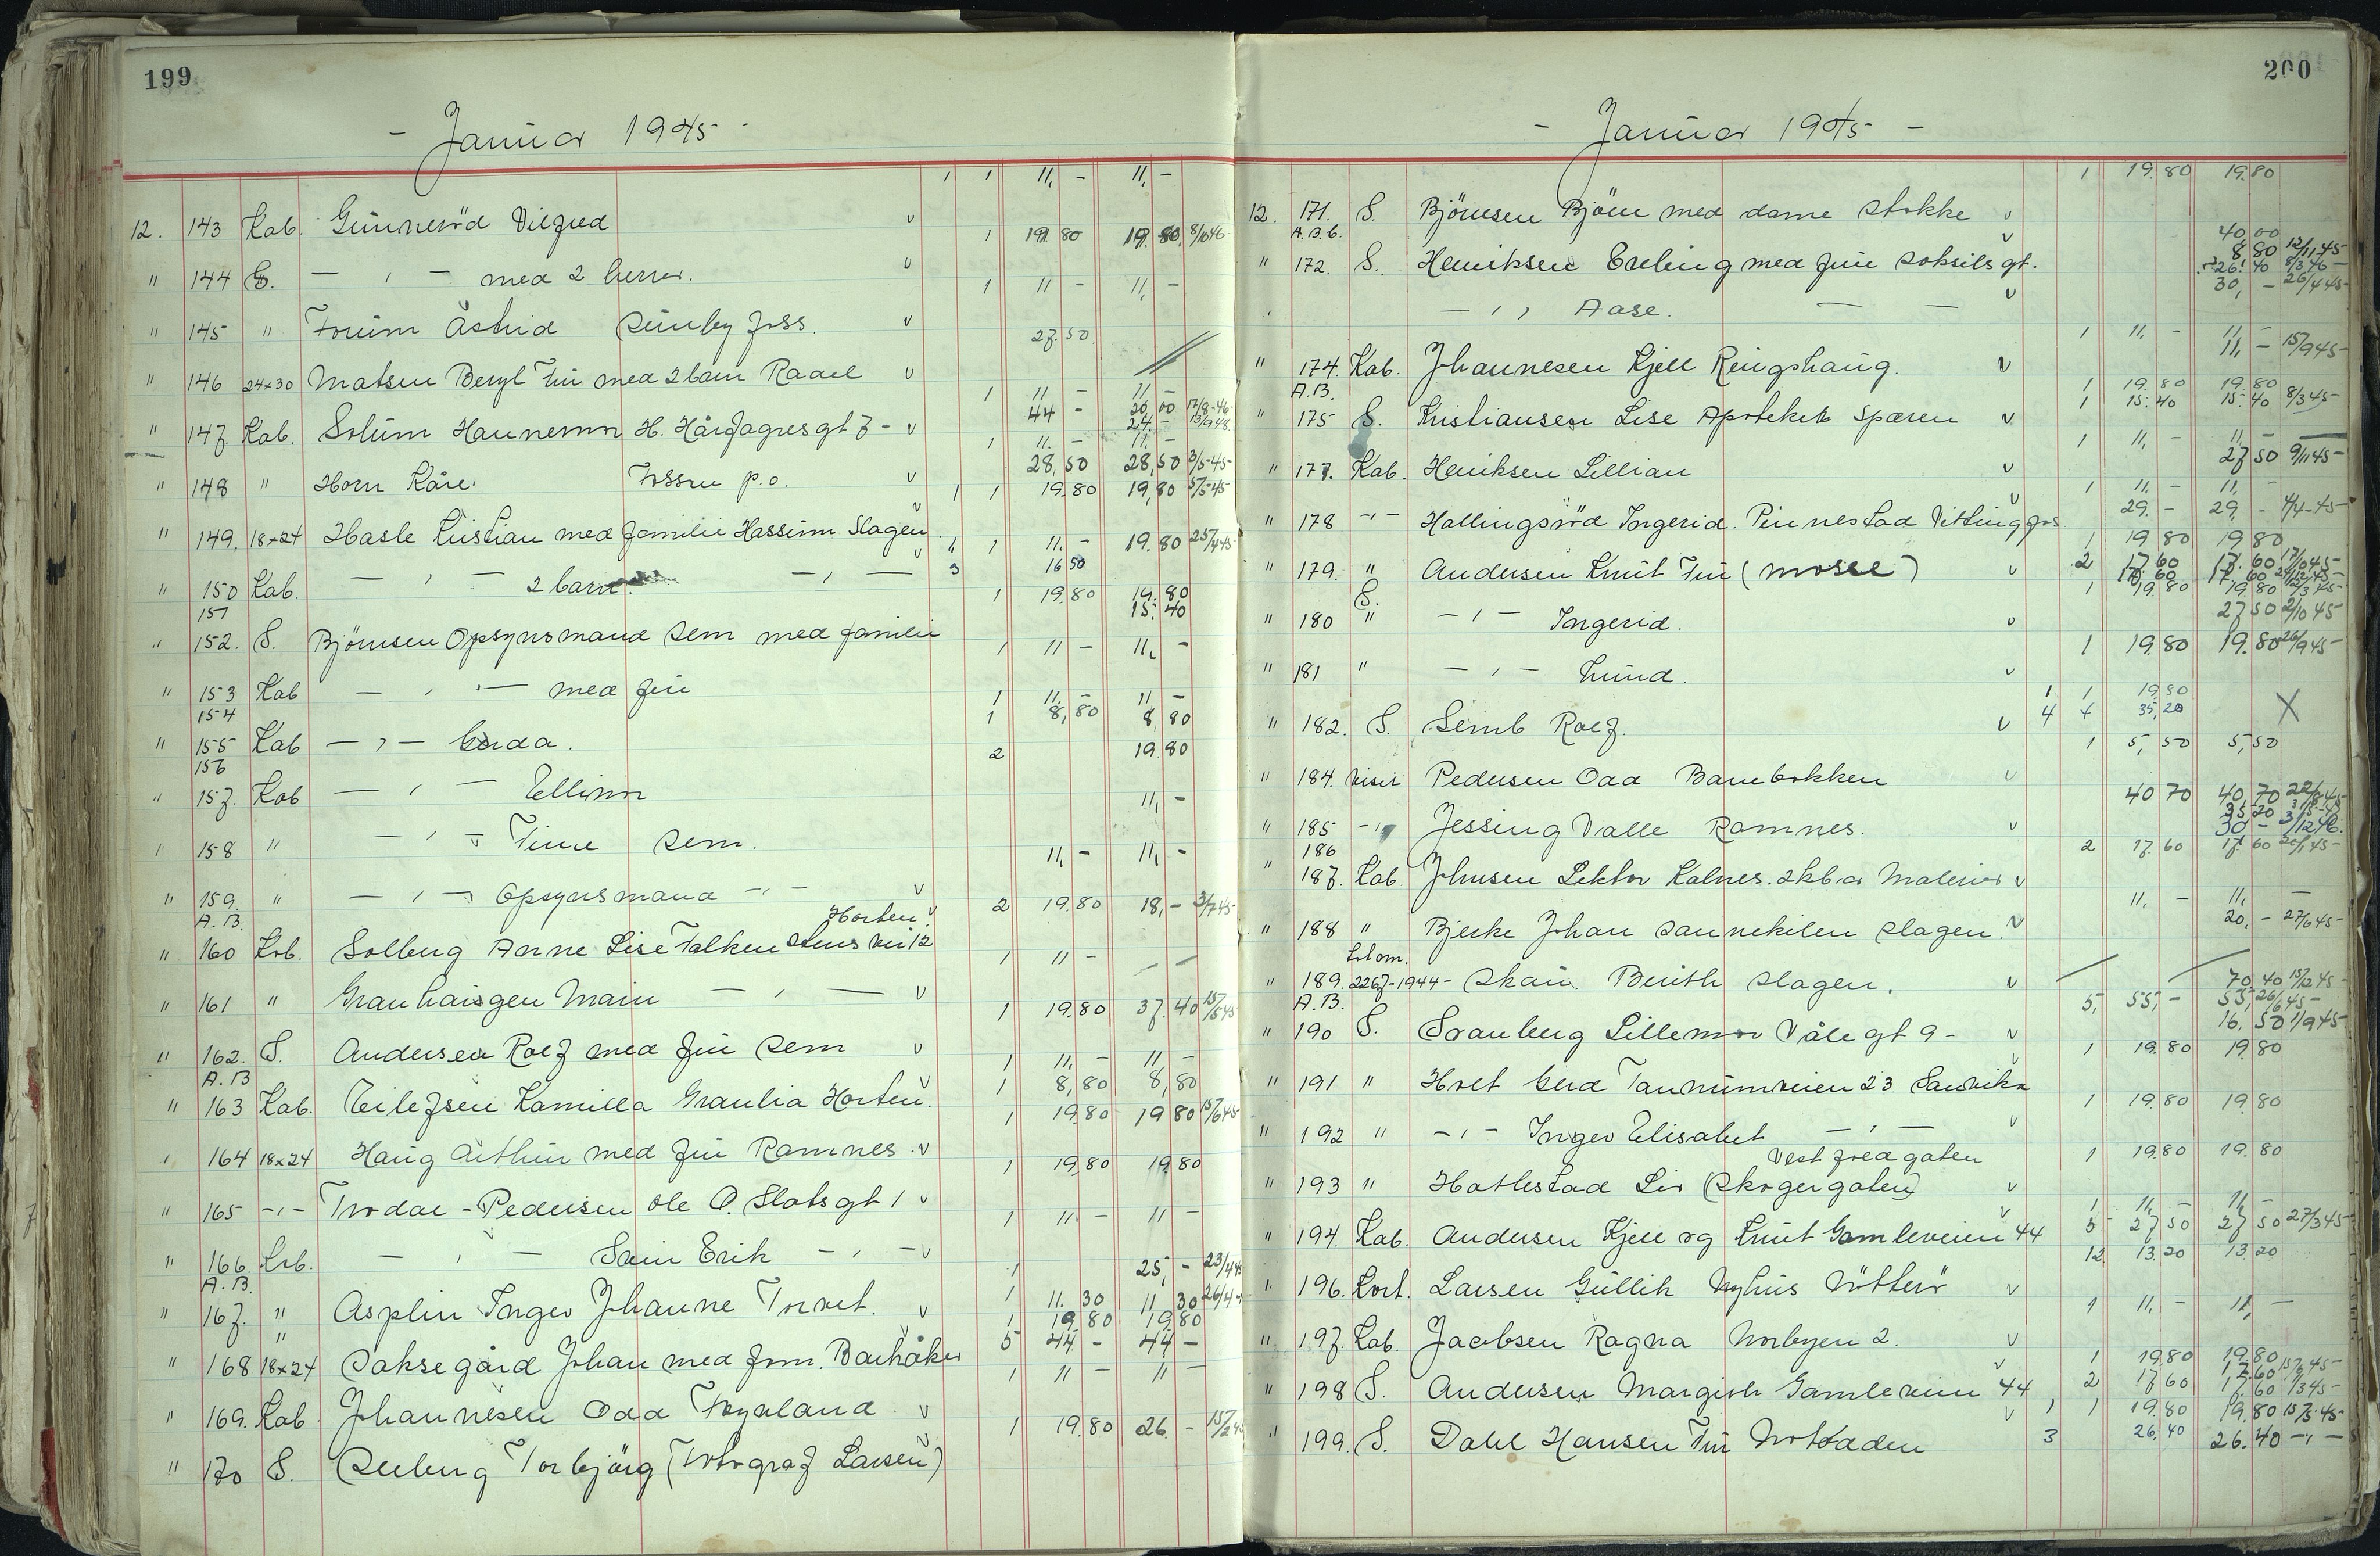 199
- Januar 1945 -
1 1 11, - 11, -
12. 143 Kab. Gunnerød Vilfred v
1 19. 80 19. 80 8/10 46-
" 144 S. - , - med 2 herrer. v
1 11 - 11, -
" 145 " Forum Åstrid Sünby foss. v
27. 50.
" 146 24x30 Matsen Beryl Fru med 2 barn Raael v
1 11 - 11 -
44 - 20,00 17/8-46-
24 - 13/9 48
" 147 Kab. Solum Hannemor H. Hårfagresgt 7 - v
1 11. - 11. -
28,50 28,50 3/5-45-
" 148 " Horn Kåre. Fossen p.o. v
1 1 19.80 19,80 5/5-45
" 149. 18x24 Hasle Kristian med familie Hassum Slagen v
" 1 11. - 19.80 25/4 45
3 16 50
" 150 Kab. - , - 2 barn. - , -
151
1 19.80 19.80
15. 40
" 152. S. Bjørnsen Opsynsmand Sem med familie
1 11 - 11, -
" 153 Kab - , - med fru
154
1 11. - 11 -
1 8,80 8,80
" 155 Kab - , - Gerda.
156
2 19 80
" 157. Kab - , - Ellinor
11, -
" 158 " - , - Tine Sem.
11, - 11, -
" 159. " - , - Opsynsmand - , - v
A. B.
2 19.80 18, - 3/7 45-
Horten v
" 160 Kab. Solberg Anne Lise Falkenstensvei 12
1 11 -
" 161 " Granhaugen Main - , - v
1 19.80 37. 40 15/5 45
" 162. S. Andersen Rolf med fru Sem v
A. B
1 11, - 11 -
1 8,80 8,80
" 163 Kab. Eilefsen Kamilla Granlia Horten. v
1 19.80 19 80 15/6 45
" 164 18x24 Haug Arthur med fru Ramnes. v
1 19,80 19.80
" 165 - , - Trodal - Pedersen Ole O. Slotsgt 1 v
1 11 - 11 -
" 166. Kab. - , - Svein Erik - , - v
A. B.
1 25, - 23/4 45
" 167. " Asplin Inger Johanne Torvet. v
"
1 11. 30 11 30 26/4
1 19,80 19.80
5 44 - 44 -
" 168 18x24 Saksegård Johan med fam. Barkåker
1 11 - 11 -
" 169. Kab. Johannesen Odd Foynland v
1 19.80 26. - 15/2 45
" 170 S. Seeberg Torbjørg (Fotograf Larsen) v
200
- Januar 1945 -
1 19. 80 19.80
12. 171. S. Bjørnsen Bjørn med dame Stokke v
A. B. C.
40,00
8 80 12/11 45-
26. 40 9/3 46-
30, - 26/4 45-
" 172. S. Henriksen Erling med fru Soksilsgt. v
- , , Aase. - - v
1 11, - 11, -
11, - 15/9 45-
" 174. Kab. Johannesen Kjell Ringshaug. v
A. B.
1 19.80 19.80
1 15.40 15.40 8/3 45-
" 175 S. Kristiansen Lise Apoteket Spæren v
1 11, - 11, -
27 50 9/11 45-
" 177. Kab. Henriksen Lillian v
1 11, - 11, -
29. - 29, - 4/4-45-
" 178 - , - Hallingsrød Ingerid. Pinnestad Vittingfos. v
1 19 80 19 80
2 17.60 17.60 17/10 45-
" 179. " Andersen Knut Fru (Mosse) v
S.
27 50 2/10 45
" 180 " - , - Ingerid. v
1 19.80 19.80 26/9 45-
" 181 " - , - Knud. v
1 1 19.80
4 4 35,20 X
" 182. S. Semb Rolf. v
1 5,50 5,50
" 184. Visit Pedersen Odd Barebakken v
40 70 40,70
35 20
30 - 3/12 46.
" 185 - , - Jessing Valle Ramnes. v
186
2 17.60 17.60 20/1 45-
" 187. Kab. Johnsen Lektor Kalnes. 2 kb. av Malerier v
11, - 11, -
20, - 27/6 45-
" 188 " Bjerke Johan Sannekilen Slagen. v
Kab om.
" 189. 2267-1944- Skau. Berith Slagen. v
A. B.
70 40 15/12 45-
5, 55, - 55, 26/6 45-
16, 50 1/9 45
" 190 S. Svanberg Lillemor Våle gt 9 - v
1 19.80 19.80
" 191 " Holt Gerd Tanumveien 23 Sandvika v
1 19.80 19.80
" 192 " - , - Inger Elisabet - , - v
Vestfoldgaten
1 19.80 19.80
" 193 " Hatlestad Liv (Skogergaten) v
1 11, - 11, -
5 27,50 27,50 27/3 45-
" 194. Kab. Andersen Kjell og Knut Gamleveien 44 v
12 13.20 13.20
" 196. Kort. Larsen Gullik Nyhus Nøtterø v
1 11, - 11, -
" 197. Kab. Jacobsen Ragna Norbyen 2. v
1 19.80 19.80
2 17 60 17.60 1/3 45-
" 198 S. Andersen Margith Gamleveien 44 v
1 1 19.80 19.80 15/5 45-
3 26,40 26.40 - , -
" 199. S. Dahl Hansen Fru Notodden v